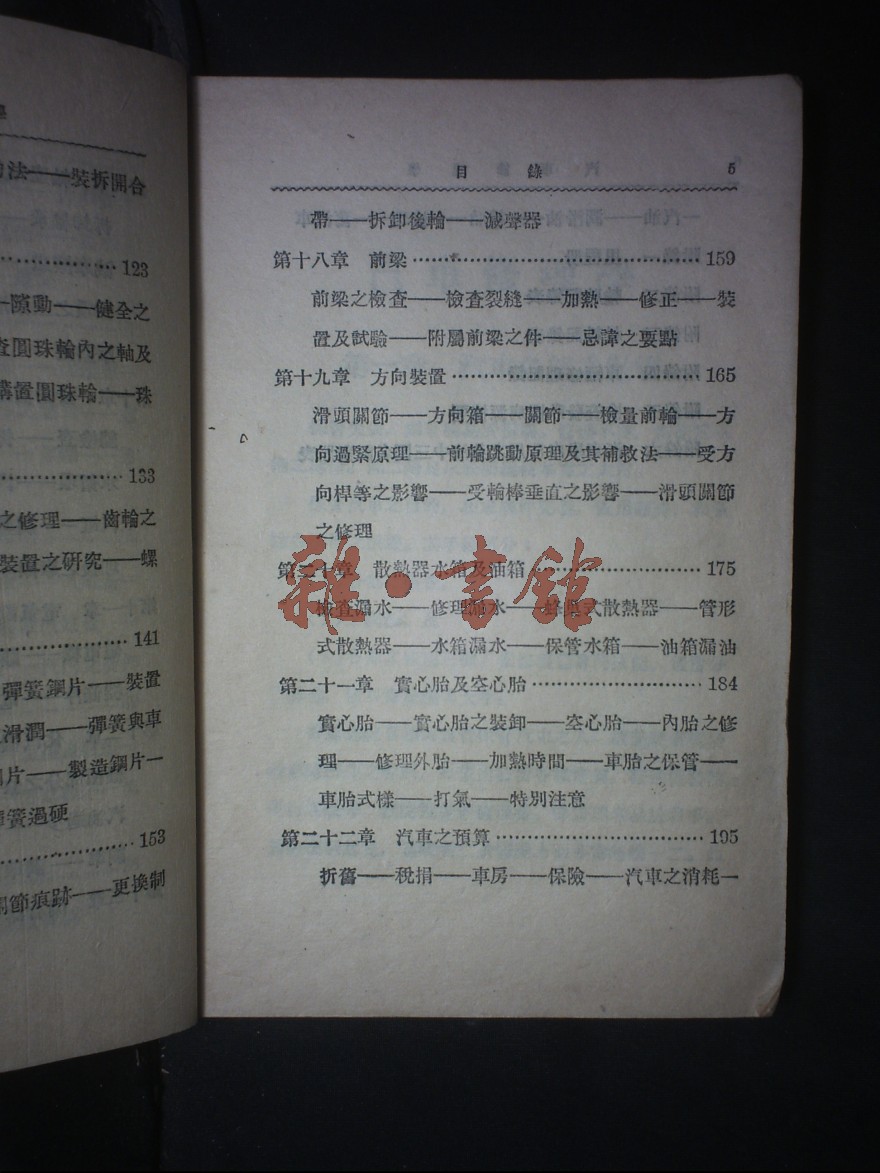 的法——裝拆開合
123
隨動——健全之
查圓珠輪內之軸及
講置圓珠輪——珠
133
之修理——齒輪之
裝置之研究——螺
141
彈簧鋼片——裝置
滑潤——彈簧與車
片——製造鋼片—
簧過硬
153
關節痕跡——更換制
目錄 5
帶——拆卸後輪——滅聲器
第十八章 前梁……………………………………159
前梁之檢查——檢查裂縫——加熱——修正——裝
置及試驗——附屬前梁之件——忌諱之要點
第十九章 方向裝置………………………………165
滑頭關節——方向箱——關節——檢量前輪——方
向過緊原理——前輪跳動原理及其補救法——受方
向桿等之影響——受輪棒垂直之影響——滑頭關節
之修理
第二十章 散熱器水箱及油箱……………………175
檢查漏水——修理漏水——蜂巢式散熱器——管形
式散熱器——水箱漏水——保管水箱——油箱漏油
第二十一章 實心胎及空心胎……………………184
實心胎——實心胎之裝卸——空心胎——內胎之修
理——修理外胎——加熱時間——車胎之保管——
車胎式樣——打氣——特別注意
第二十二章 汽車之預算…………………………195
折舊——稅捐——車房——保險——汽車之消耗—
雜·書館